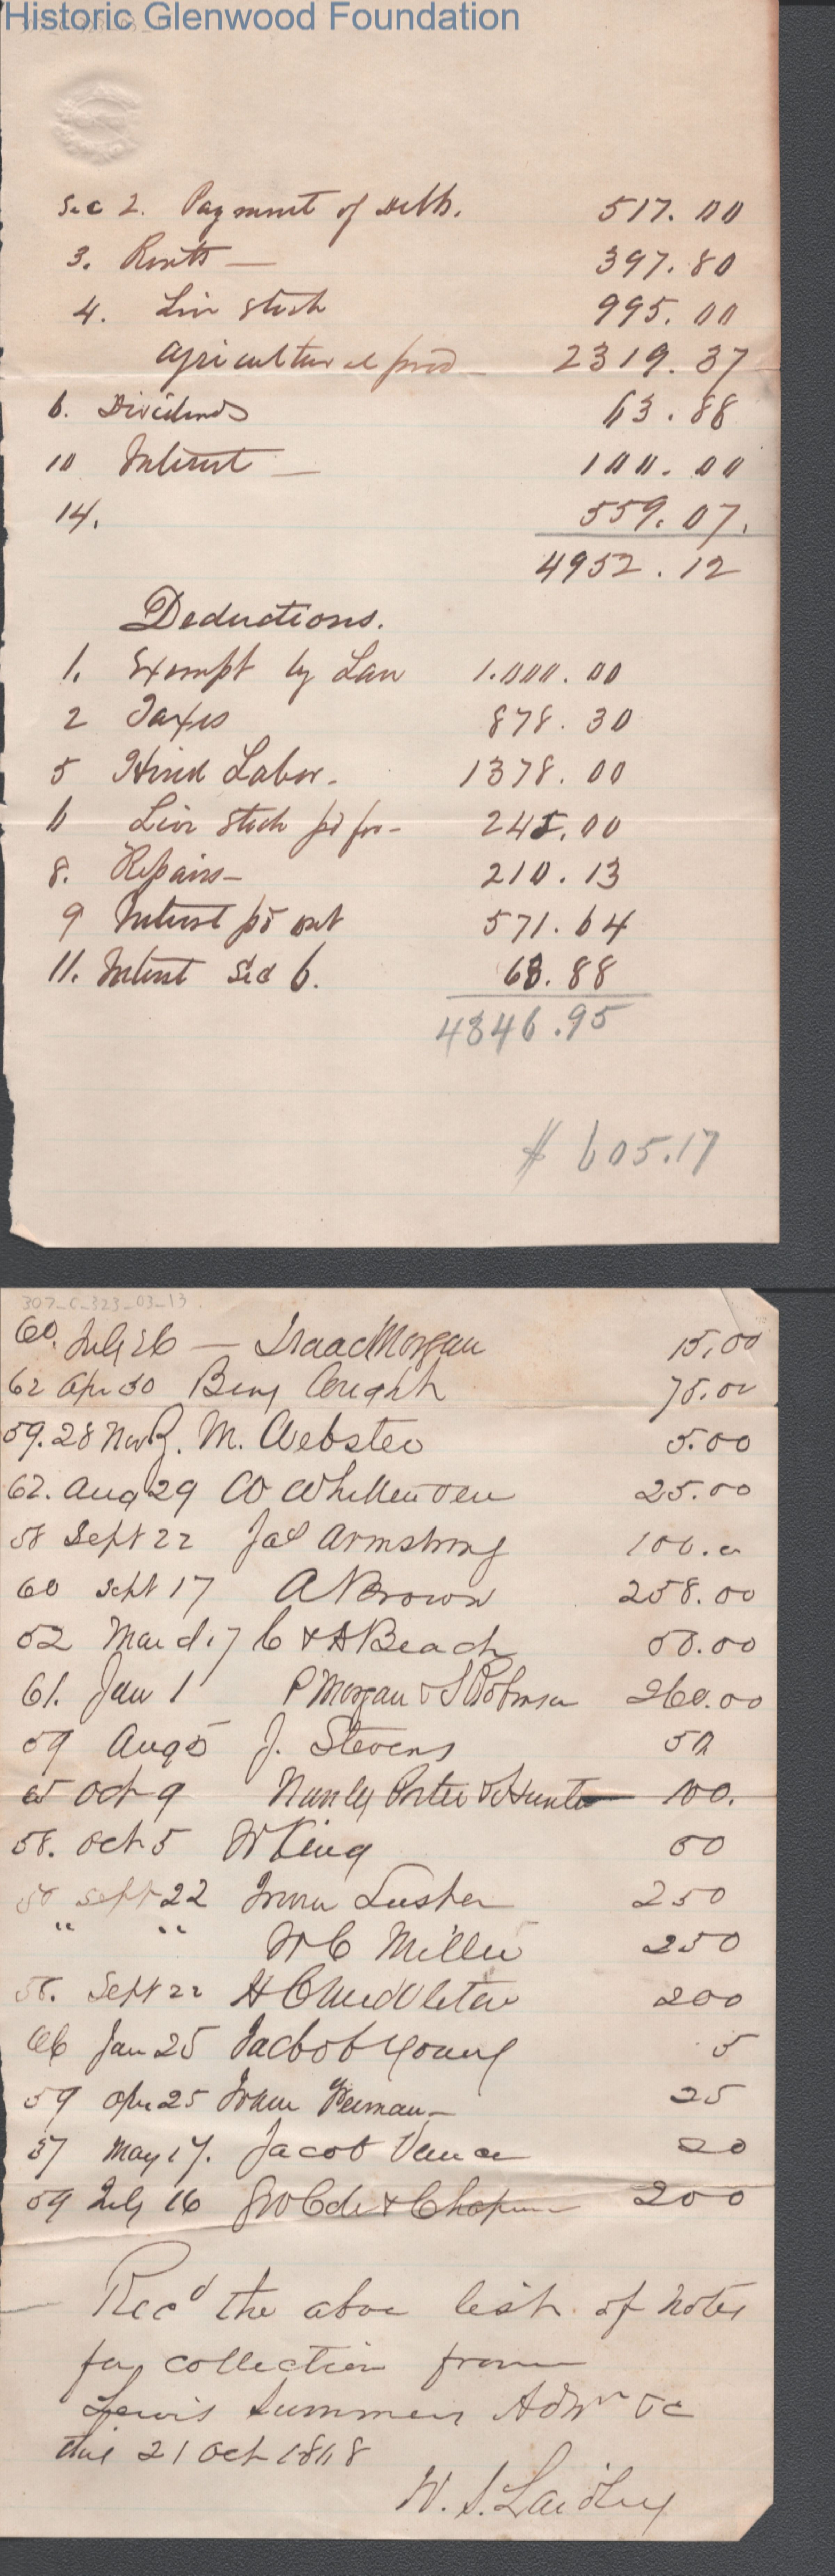 Historic Glenwood Foundation
Sec 2. Payment of debts. 517.00
3. Rents — 397.80
4. Live stock 995.00
Agricultural prod 2319.37
6. Dividends 63.88
10 Interest — 100.00
14. 559.07.
4952.12
Deductions.
1. Exempt by Law 1.000.00
2 Taxes 878.30
5 Hired Labor. 1378.00
6 Live stock pd for- 245.00
8. Repairs- 210.13
9 Interest pd out 571.64
11. Interest Sec 6. 63.88
4346.95
$ 605.17
307_C_323_03_13
60. July 26 — Isaac Morgan 15.00
62 Apr 30 Benj Wright 75.00
59. 28 Nov R. M. Webster 5.00
62. Aug 29 W Whittenden 25.00
58 Sept 22 Jas Armstrong 100.
60 Sept 17 A Brown 258.00
52 March 17 C & A Beach 50.00
61. Jan 1 P Morgan & S Robinson 260.00
59 Aug 5 J. Stevens 50
Oct 9 Nunly Porter & Hunter 100.
58. Oct 5 W King 50
58 Sept 22 Irvin Lusher 250
" " W C Miller 250
58. Sept 22 H C Middleton 200
66 Jan 25 Jacob Young 5
59 Apr 25 25
57 May 17. Jacob Vance 20
59 July 16 & Chapman 200
Recd the above list of notes
for collection from
Lewis Summers Admr &c
this 21 Oct 1868
W. S. Laidley